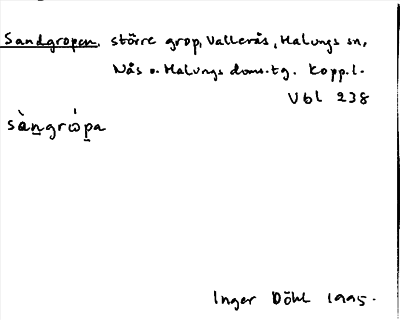 Sandgropen, större grop, Vallerås, Malungs sn,
Nås o. Malungs doms.tg. Kopp.l.
Vbl 238
sàngrὼpa
Inger Döhl 1995.